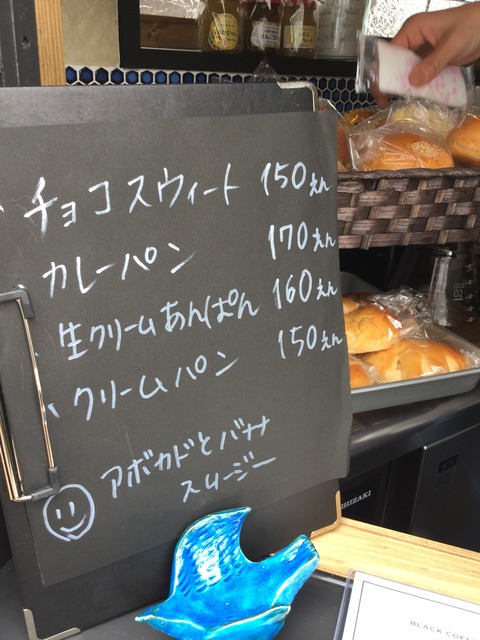 チョコスウィート 150えん
カレーパン 170えん
生クリームあんぱん 160えん
クリームパン 150えん
アボカドとバナナ
スムージー
SHIZAKI
BLACK COF
02